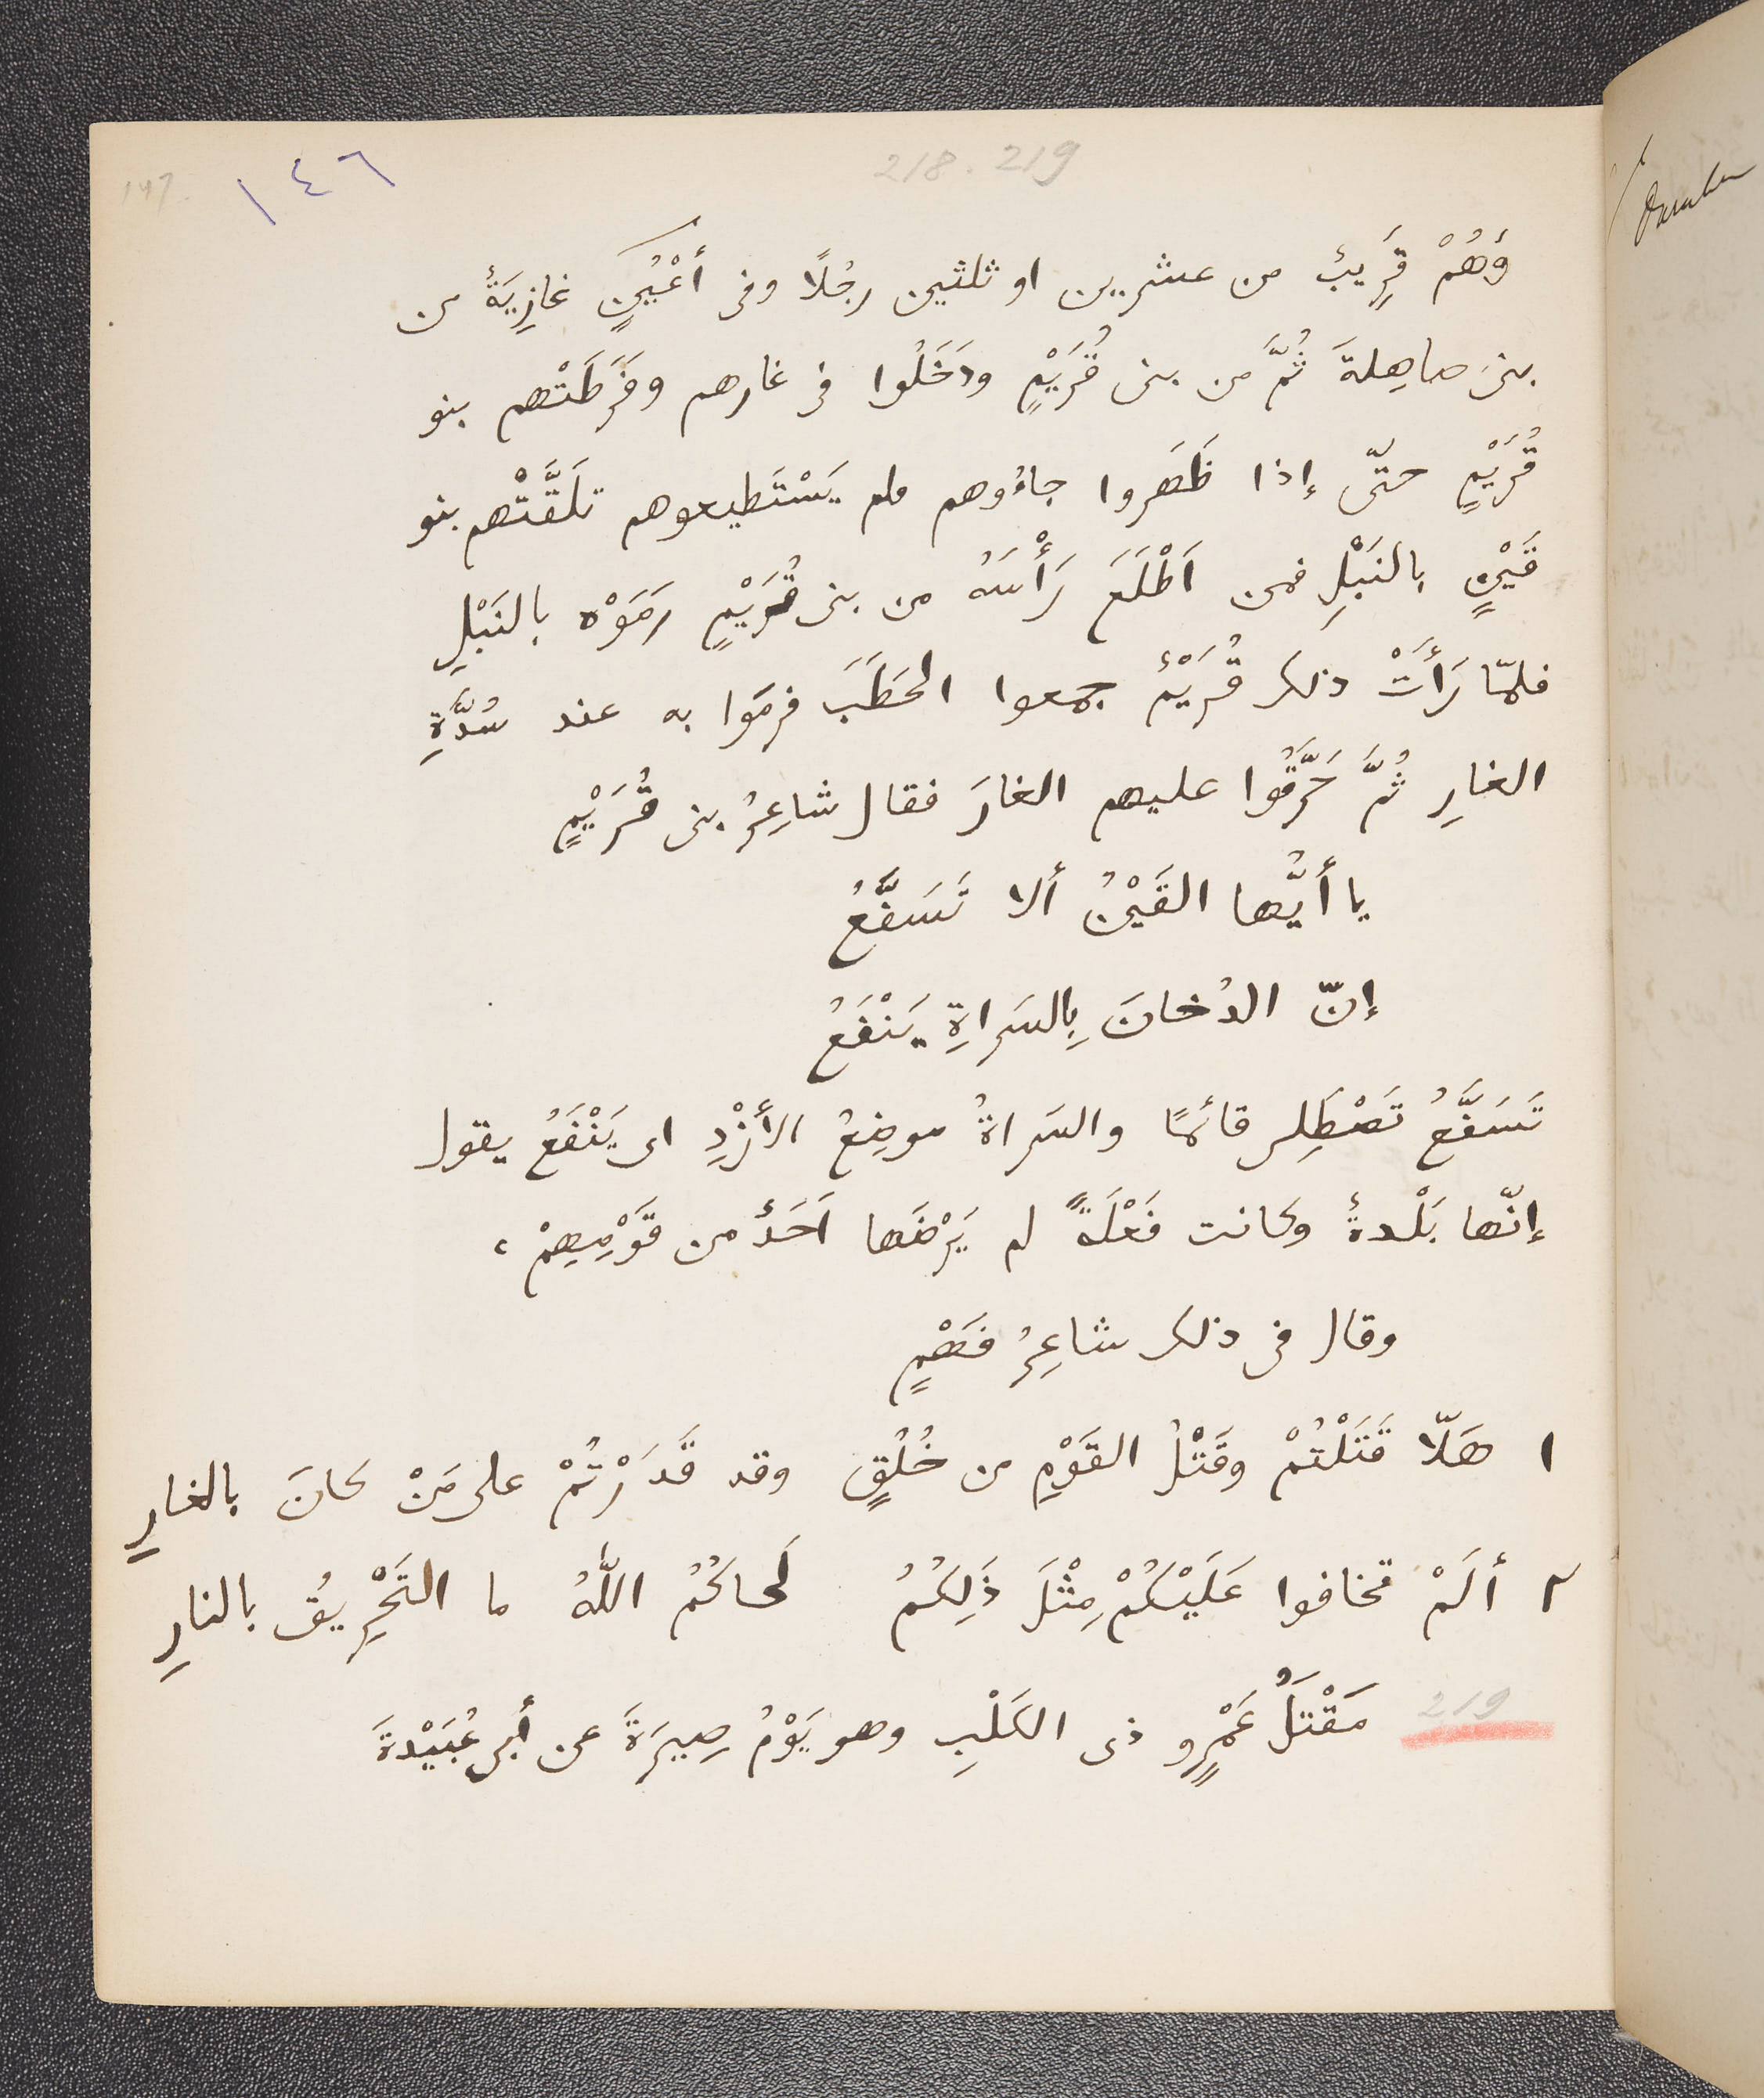 218. 219
١٤٦
147.
وَهُمْ قَرِيبٌ من عشرين او ثلثين رجُلًا وفى أَعْيُنٍ غازِيَةٌ من
بنى صاهِلةَ ثُمَّ من بنى قُرَيْمٍ ودَخَلُوا فى غارهم وفَرَطَتْهم بنو
قُرَيْمٍ حتّى إذا ظَهَروا جاءُوهم ولم يَسْتَطيعوهم تَلَقَّتْهم بنو
قَيْنٍ بالنَبْلِ فمن اَطْلَعَ رَأْسَهُ من بنى قُرَيْمٍ رَمَوْه بالنَبْلِ
فلمّا رَأَتْ ذلك قُرَيْمٌ جمعوا الحَطَبَ فرمَوا به عند سُدَّةِ
الغارِ ثُمَّ حَرَّقُوا عليهم الغارَ فقال شاعِرُ بنى قُرَيْمٍ
يا أَيُّها القَيْنُ ألا تَسَفَّعُ
إنّ الدُخانَ بِالسَراةِ يَنْفَعُ
تَسَفَّعُ تَصْطَلِى قائمًا والسَراةُ موضِعُ الأَزْدِ اى يَنْفَعُ يقول
إنّها بَلْدةٌ وكانت فَعْلَةً لم يَرْضَها اَحَدٌ من قَوْمِهِمْ ،
وقال فى ذلك شاعِرُ فَهْمٍ
١ هَلّا قَتَلْتُمْ وقَتْلُ القَوْمِ من خُلُقٍ وقد قَدَرْتُمْ على مَنْ كانَ بالغارِ
٢ أَلَمْ تخافوا عَلَيْكُمْ مِثْلَ ذَلِكُمُ لَحاكُمُ اللّٰهُ ما التَحْرِيقُ بالنارِ
219 مَقْتَلُ عَمْرٍو ذى الكَلْبِ وهو يَوْمُ صِيرَةَ عن أَبى عُبَيْدةَ